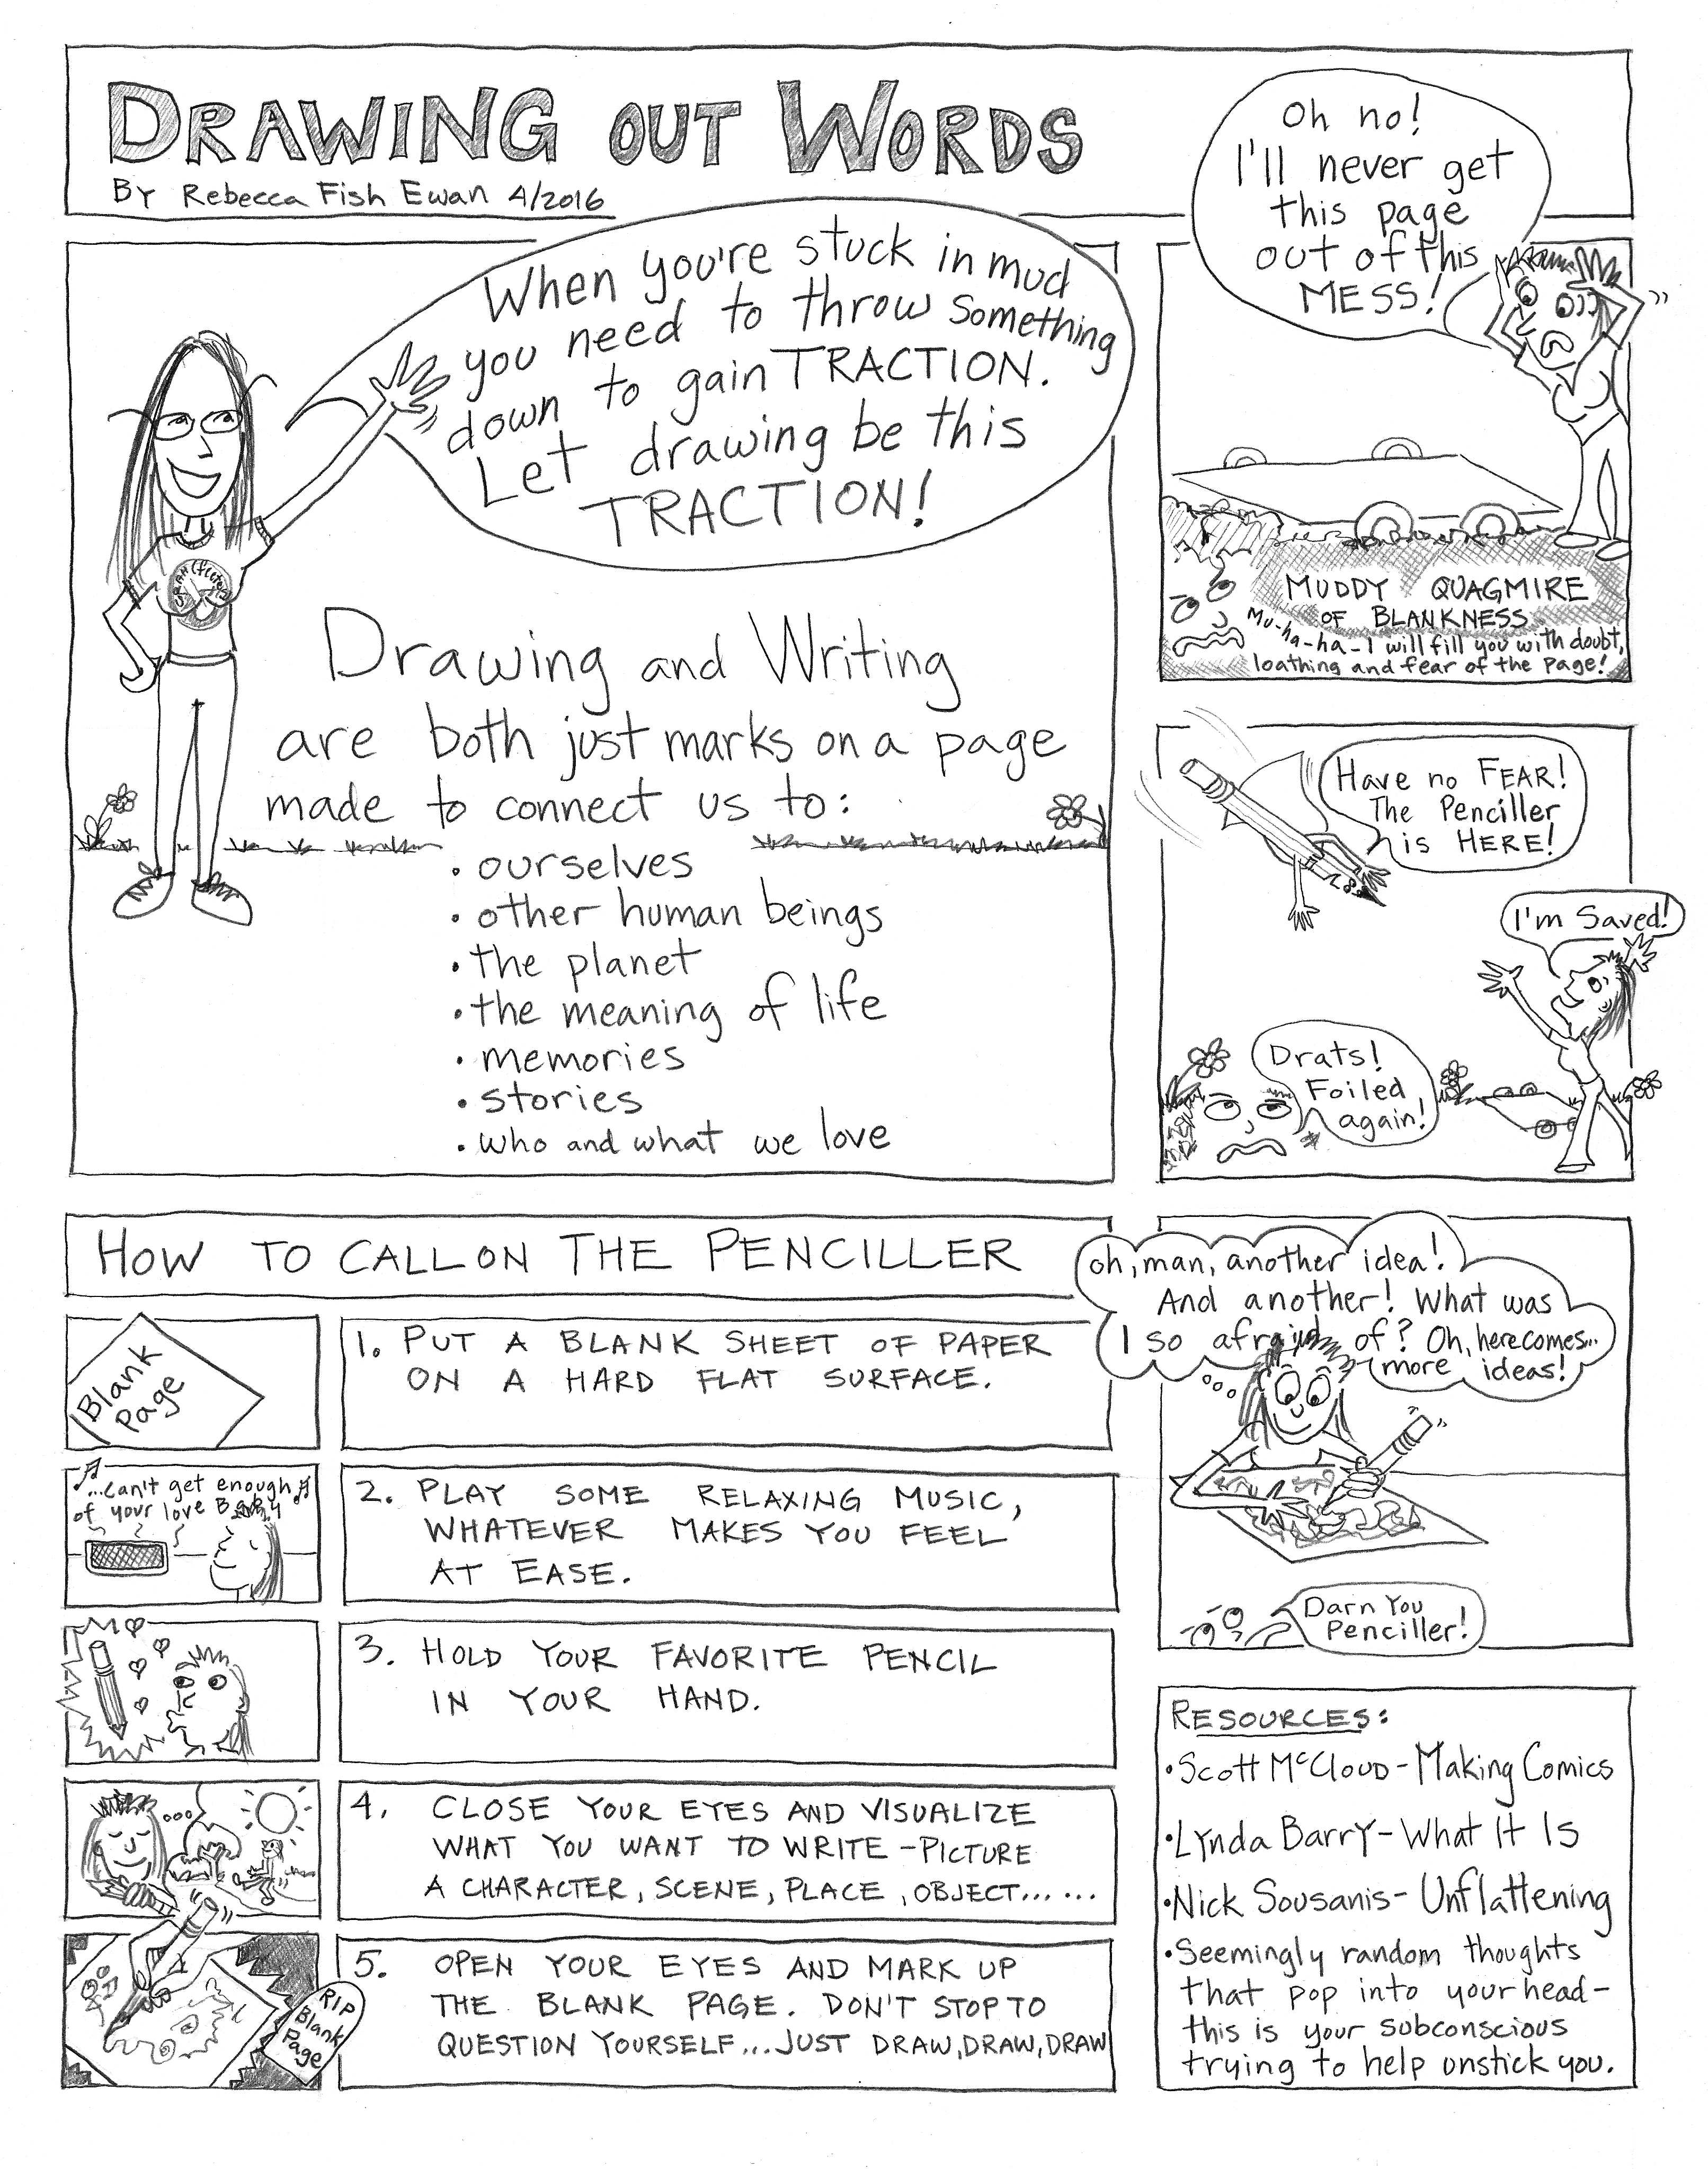 DRAWING OUT WORDS
BY Rebecca Fish Ewan 4/2016
When you're stuck in mud
you need to throw something
down to gain TRACTION.
Let drawing be this
TRACTION!
Drawing and Writing
are both just marks on a page
made to connect us to:
• ourselves
• other human beings
• the planet
• the meaning of life
• memories
• stories
• who and what we love
Oh no!
I'll never get
this page
out of this
MESS!
MUDDY QUAGMIRE
OF BLANKNESS
Mu-ha-ha-I will fill you with doubt,
loathing and fear of the page!
Have no FEAR!
The Penciller
is HERE!
I'm Saved!
Drats!
Foiled
again!
HOW TO CALL ON THE PENCILLER
Blank
Page
1. PUT A BLANK SHEET OF PAPER
ON A HARD FLAT SURFACE.
...can't get enough
of your love BABY
2. PLAY SOME RELAXING MUSIC,
WHATEVER MAKES YOU FEEL
AT EASE.
3. HOLD YOUR FAVORITE PENCIL
IN YOUR HAND.
4. CLOSE YOUR EYES AND VISUALIZE
WHAT YOU WANT TO WRITE - PICTURE
A CHARACTER, SCENE, PLACE, OBJECT... ...
RIP
Blank
Page
5. OPEN YOUR EYES AND MARK UP
THE BLANK PAGE. DON'T STOP TO
QUESTION YOURSELF...JUST DRAW, DRAW, DRAW
oh, man, another idea!
And another! What was
I so afraid of? Oh, here comes...
more ideas!
Darn You
Penciller!
RESOURCES:
• Scott McCloud - Making Comics
• Lynda Barry - What It Is
• Nick Sousanis - Unflattening
• Seemingly random thoughts
that pop into your head -
this is your subconscious
trying to help unstick you.